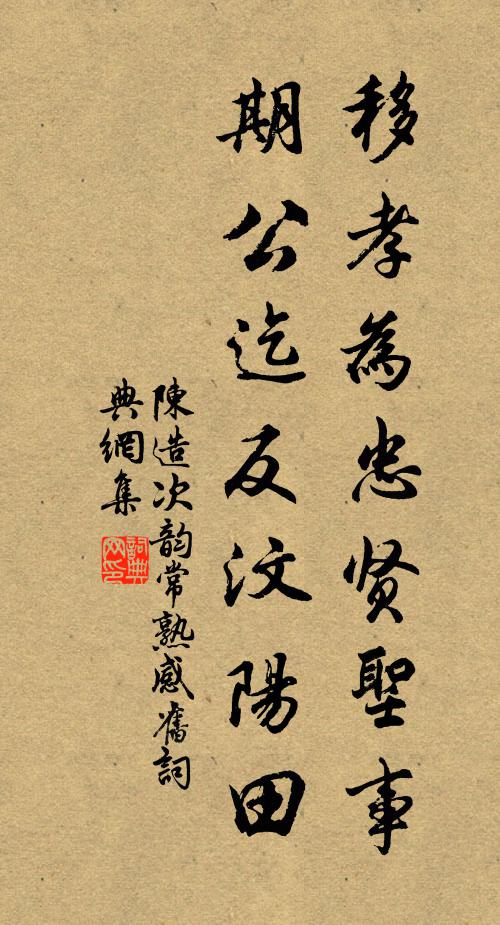 移孝為忠贤聖事
期公迄反汶陽田
陳造次韵常熟感舊詞
典網集
詞典
网印